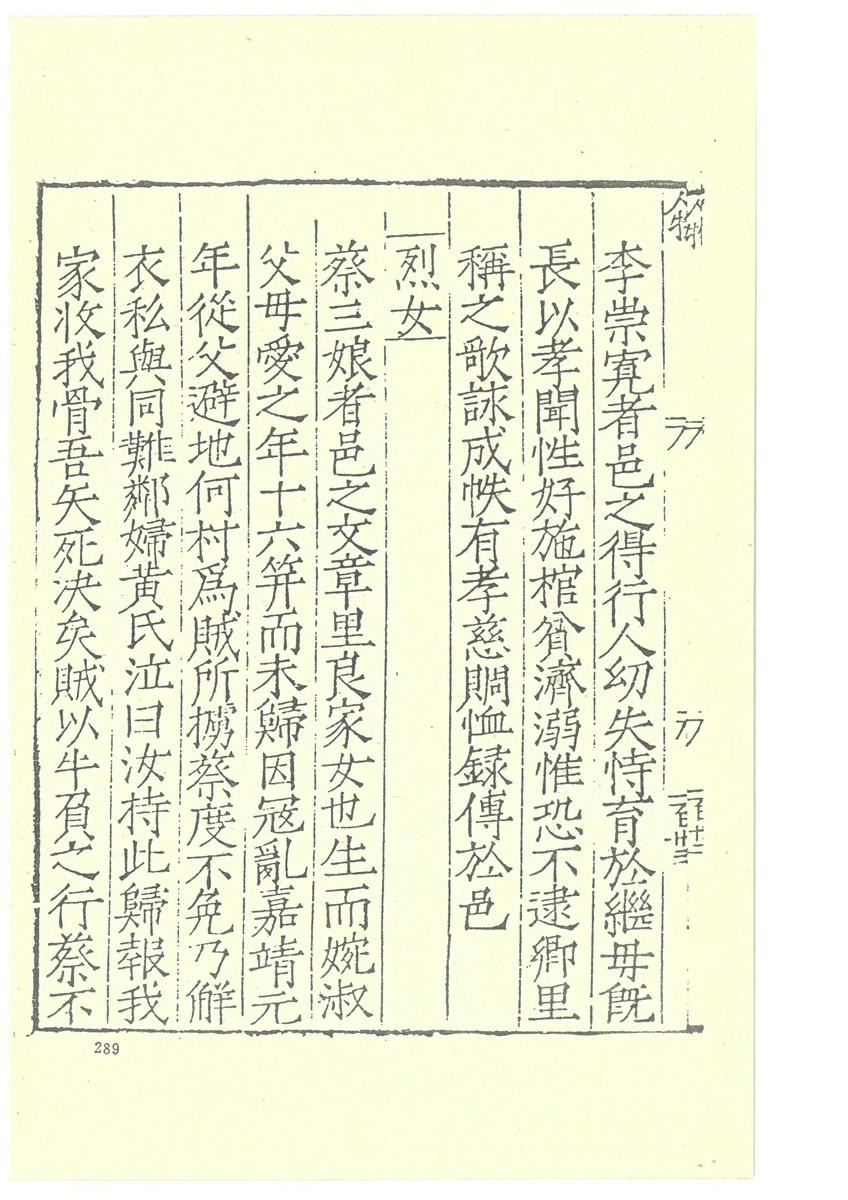 李崇寛者邑之得行人幼失恃育於繼母旣
長以孝聞性好施棺貧濟溺惟恐不逮鄉里
稱之歌詠成帙有孝慈賙恤録傳於邑
烈女
蔡三娘者邑之文章里良家女也生而婉淑
父母愛之年十六笄而未歸因冦亂嘉靖元
年從父避地何村爲賊所擄蔡度不免乃解
衣私與同難鄰婦黃氏泣曰汝持此歸報我
家收我骨吾矢死决矣賊以牛負之行蔡不
289